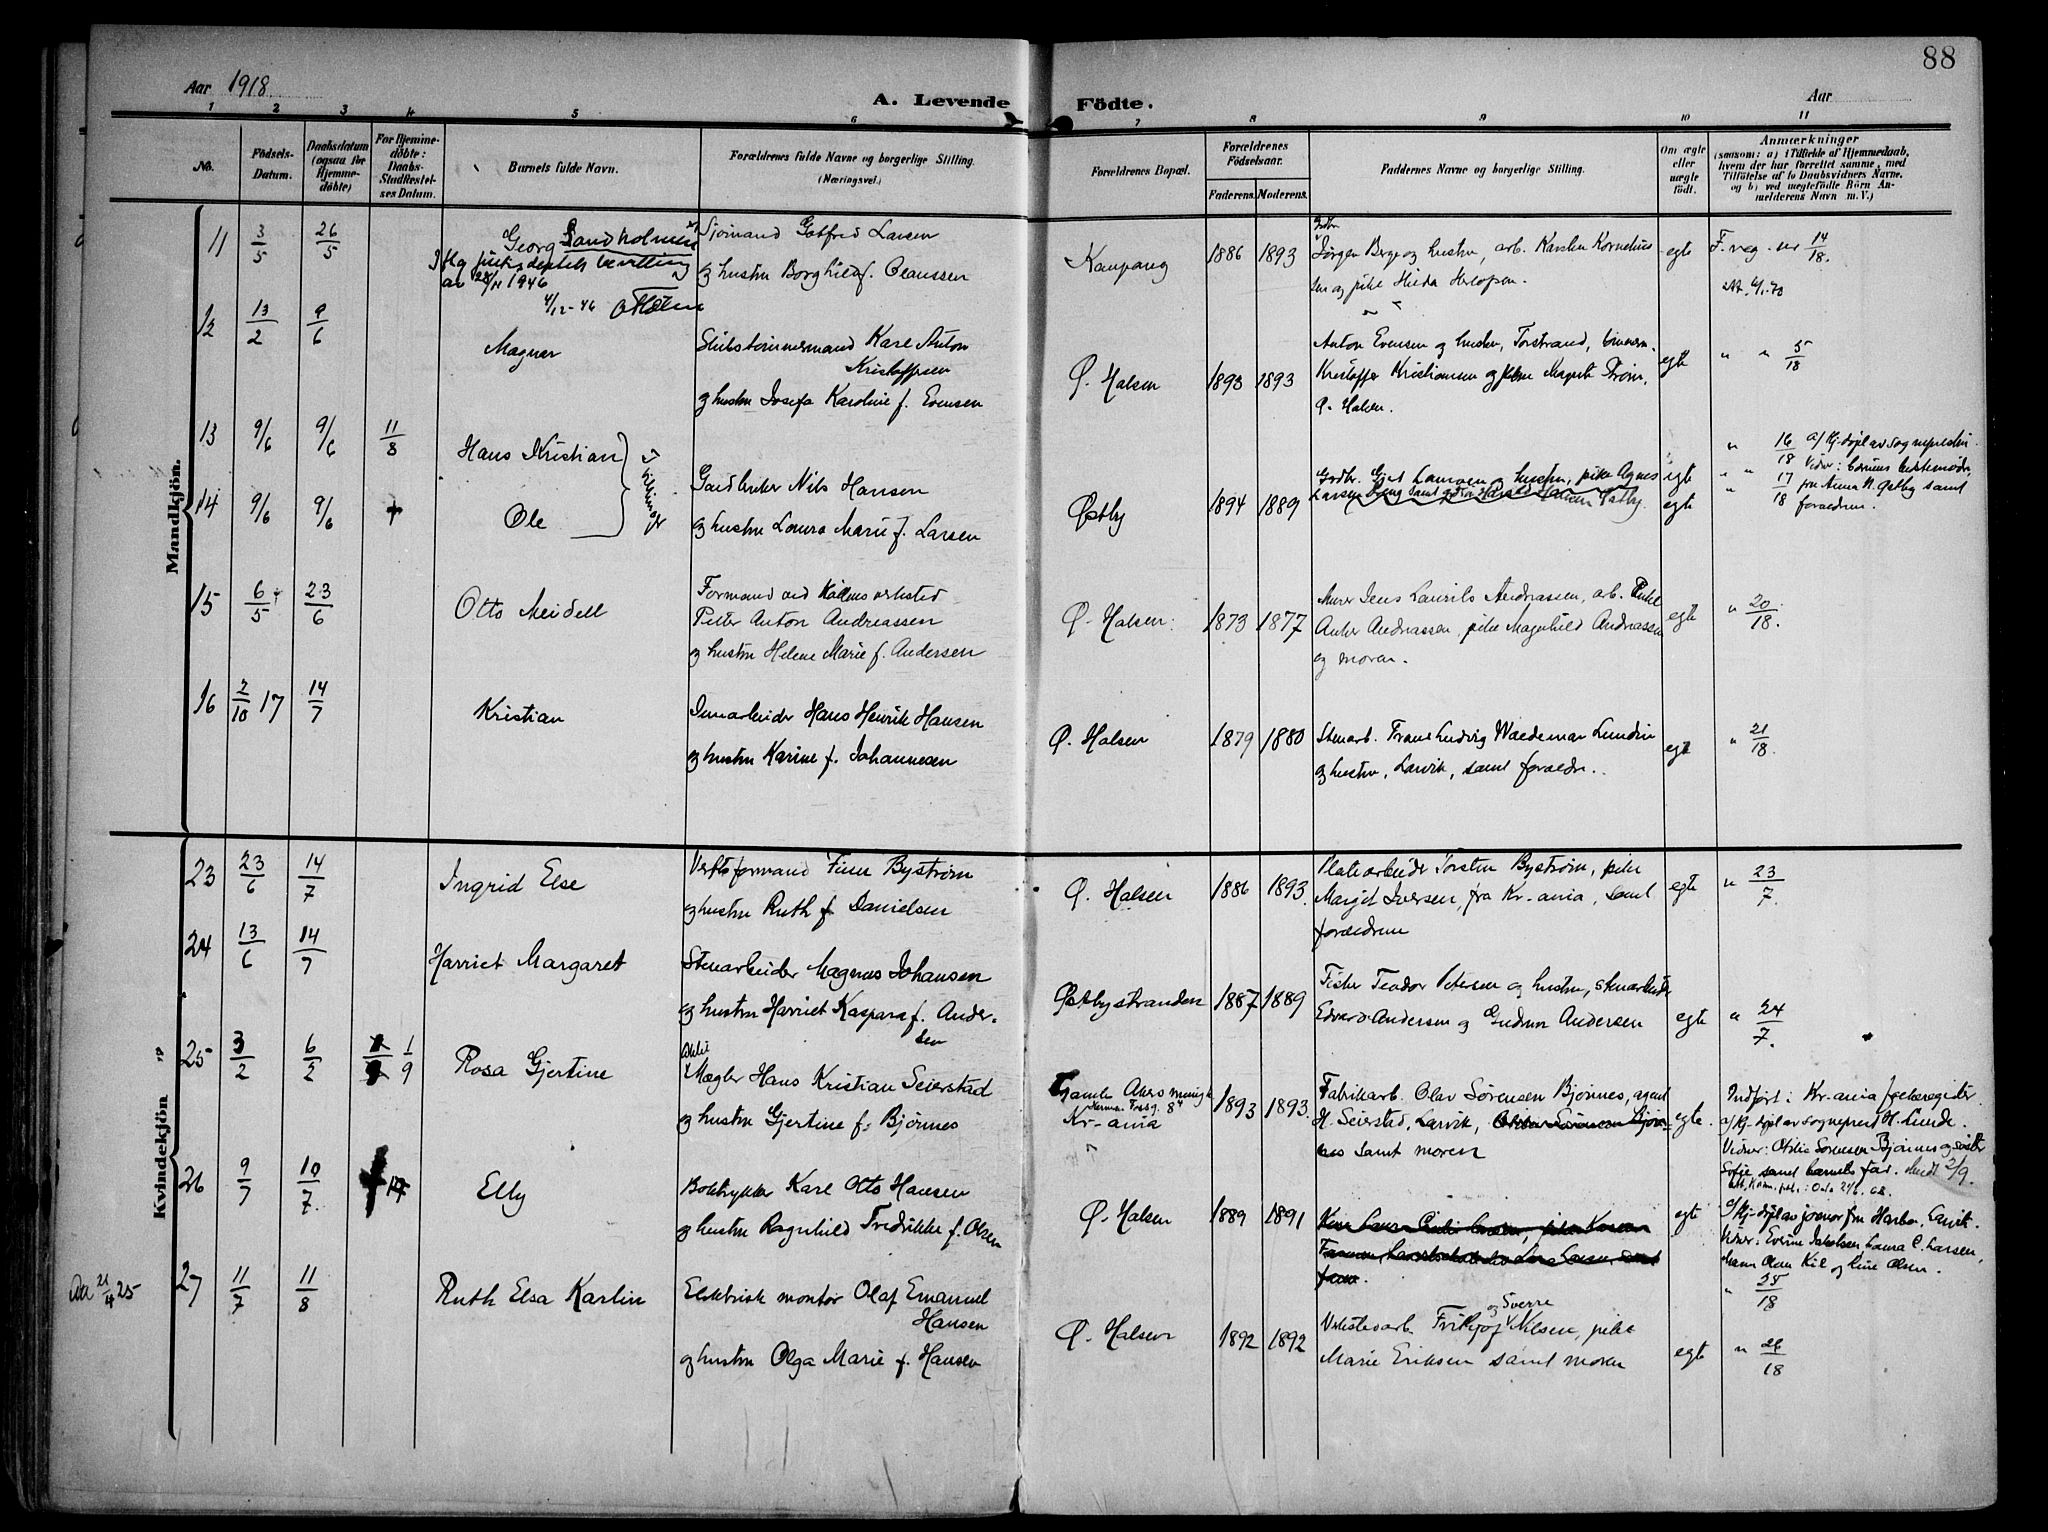 88
Aar 1918.
A. Levende Födte.
Aar
1 2 3 4 5 6 7 8 9 10 11
No.
Födsels-Datum.
Daabsdatum (ogsaa for Hjemmedöbte)
For Hjemmedöbte: Daabs-Stadfæstelses Datum.
Barnets fulde Navn.
Forældrenes fulde Navne og borgerlige Stilling.
(Næringsvei.)
Forældrenes Bopæl.
Forældrenes Födselsaar.
Faderens. Moderens.
Faddernes Navne og borgerlige Stilling.
Om ægte eller uægte födt.
Anmærkninger
(saasom: a) i Tilfælde af Hjemmedaab, hvem der har forrettet samme, med Tilföielse af to Daabsvidners Navne. og b) ved uægtefödte Börn Anmelderens Navn m. V.)
Mandkjön.
11 3/5 26/5 Georg Sandholmen
av 28/11 1946
4/12-46
Sjömand Gotfred Larsen
og hustru Borghild f. Olaussen
Kaupang 1886 1893
Jörgen Berge og hustru, arb. Karsten Kornelius
sen og pike Hilda
egte
14/18.
12 13/2 9/6 Magnar
Skibstömmermand Karl Anton
Kristoffersen
og hustru Josefa Karoline f. Evensen
Ø. Halsen 1893 1893
Anton Evensen og hustru, Torstrand, tömmerm.
Kristoffer Kristiansen og
Ø. Halsen.
egte " " 5/18
13 9/6 9/6 11/8 Hans Kristian
14 9/6 9/6 + Ole
Tvillinger
Gaardbruker Nils Hansen
og hustru Laura Marie f. Larsen
Østby 1894 1889
hustru, pike Agnes
Larsen
egte
egte
16/18 a/ Hj. døpt av sognepresten.
Vidner: barnets bestemødre,
17/18 fru Anna N. Østby samt
forældrene.
15 6/5 23/6 Otto Meidell
Formand ved Kaldnes verksted
Peter Anton Andreassen
og hustru Helene Marie f. Andersen
Ø. Halsen 1873 1877
Murer Jens Laurits Andreassen, arb.
Anker Andreassen, pike Magnhild Andreassen
og moren.
egte " 20/18.
16 2/10 17 14/7 Kristian
Hans Henrik Hansen
og hustru Karine f. Johannesen
Ø. Halsen 1879 1880
Stenarb. Frans Ludvig Waldemar Lundin
og hustru, Larvik, samt forældre.
egte " 21/18.
Kvindekjön
23 23/6 14/7 Ingrid Else
Verftsformand Finn Byström
og hustru Ruth f. Danielsen
Ø. Halsen 1886 1893.
Platearbeider Torsten Byström, pike
Margit Iversen, fra Kr-ania, samt
forældrene
egte " 23/7.
24 13/6 14/7 Harriet Margaret
Stenarbeider Magnus Johansen
og hustru Harriet Kaspara f. Ander-
sen
Østbystranden 1887 1889
Fisker Teodor Petersen og hustru, stenarbeider
Edvard Andersen og Gudrun Andersen
egte " 24/7.
25 3/2 6/2 1/9 Rosa Gjertine
Mægler Hans Kristian Seierstad
og hustru Gjertine f. Bjönnes
Gamle Akers
Kr-ania
1893 1893.
Fabrikarb. Olav Sörensen Bjönnes, agent
H. Seierstad, Larvik,
nes samt moren
egte.
Indført i Kr-ania
a/ Hj. døpt av sogneprest H. Lunde.
Vidner: Otilie Sörensen Bjönnes og søster
Sofie samt barnets far.
26 9/7 10/7. Elly
Boktrykker Karl Otto Hansen
og hustru Ragnhild Fredrikke f. Olsen
Ø. Halsen 1889 1891
egte
Larvik.
Vidner: Evenine Jakobsen, Laura C. Larsen,
25/18
27 11/7 11/8 Ruth Elsa Karlin
Elektrisk montör Olaf Emanuel
Hansen
og hustru Olga Marie f. Hansen
Ø. Halsen 1892 1892
og Sverre
Verkstedarb. Fritjof Nilsen, pike
Marie Eriksen samt moren
egte " 26/18